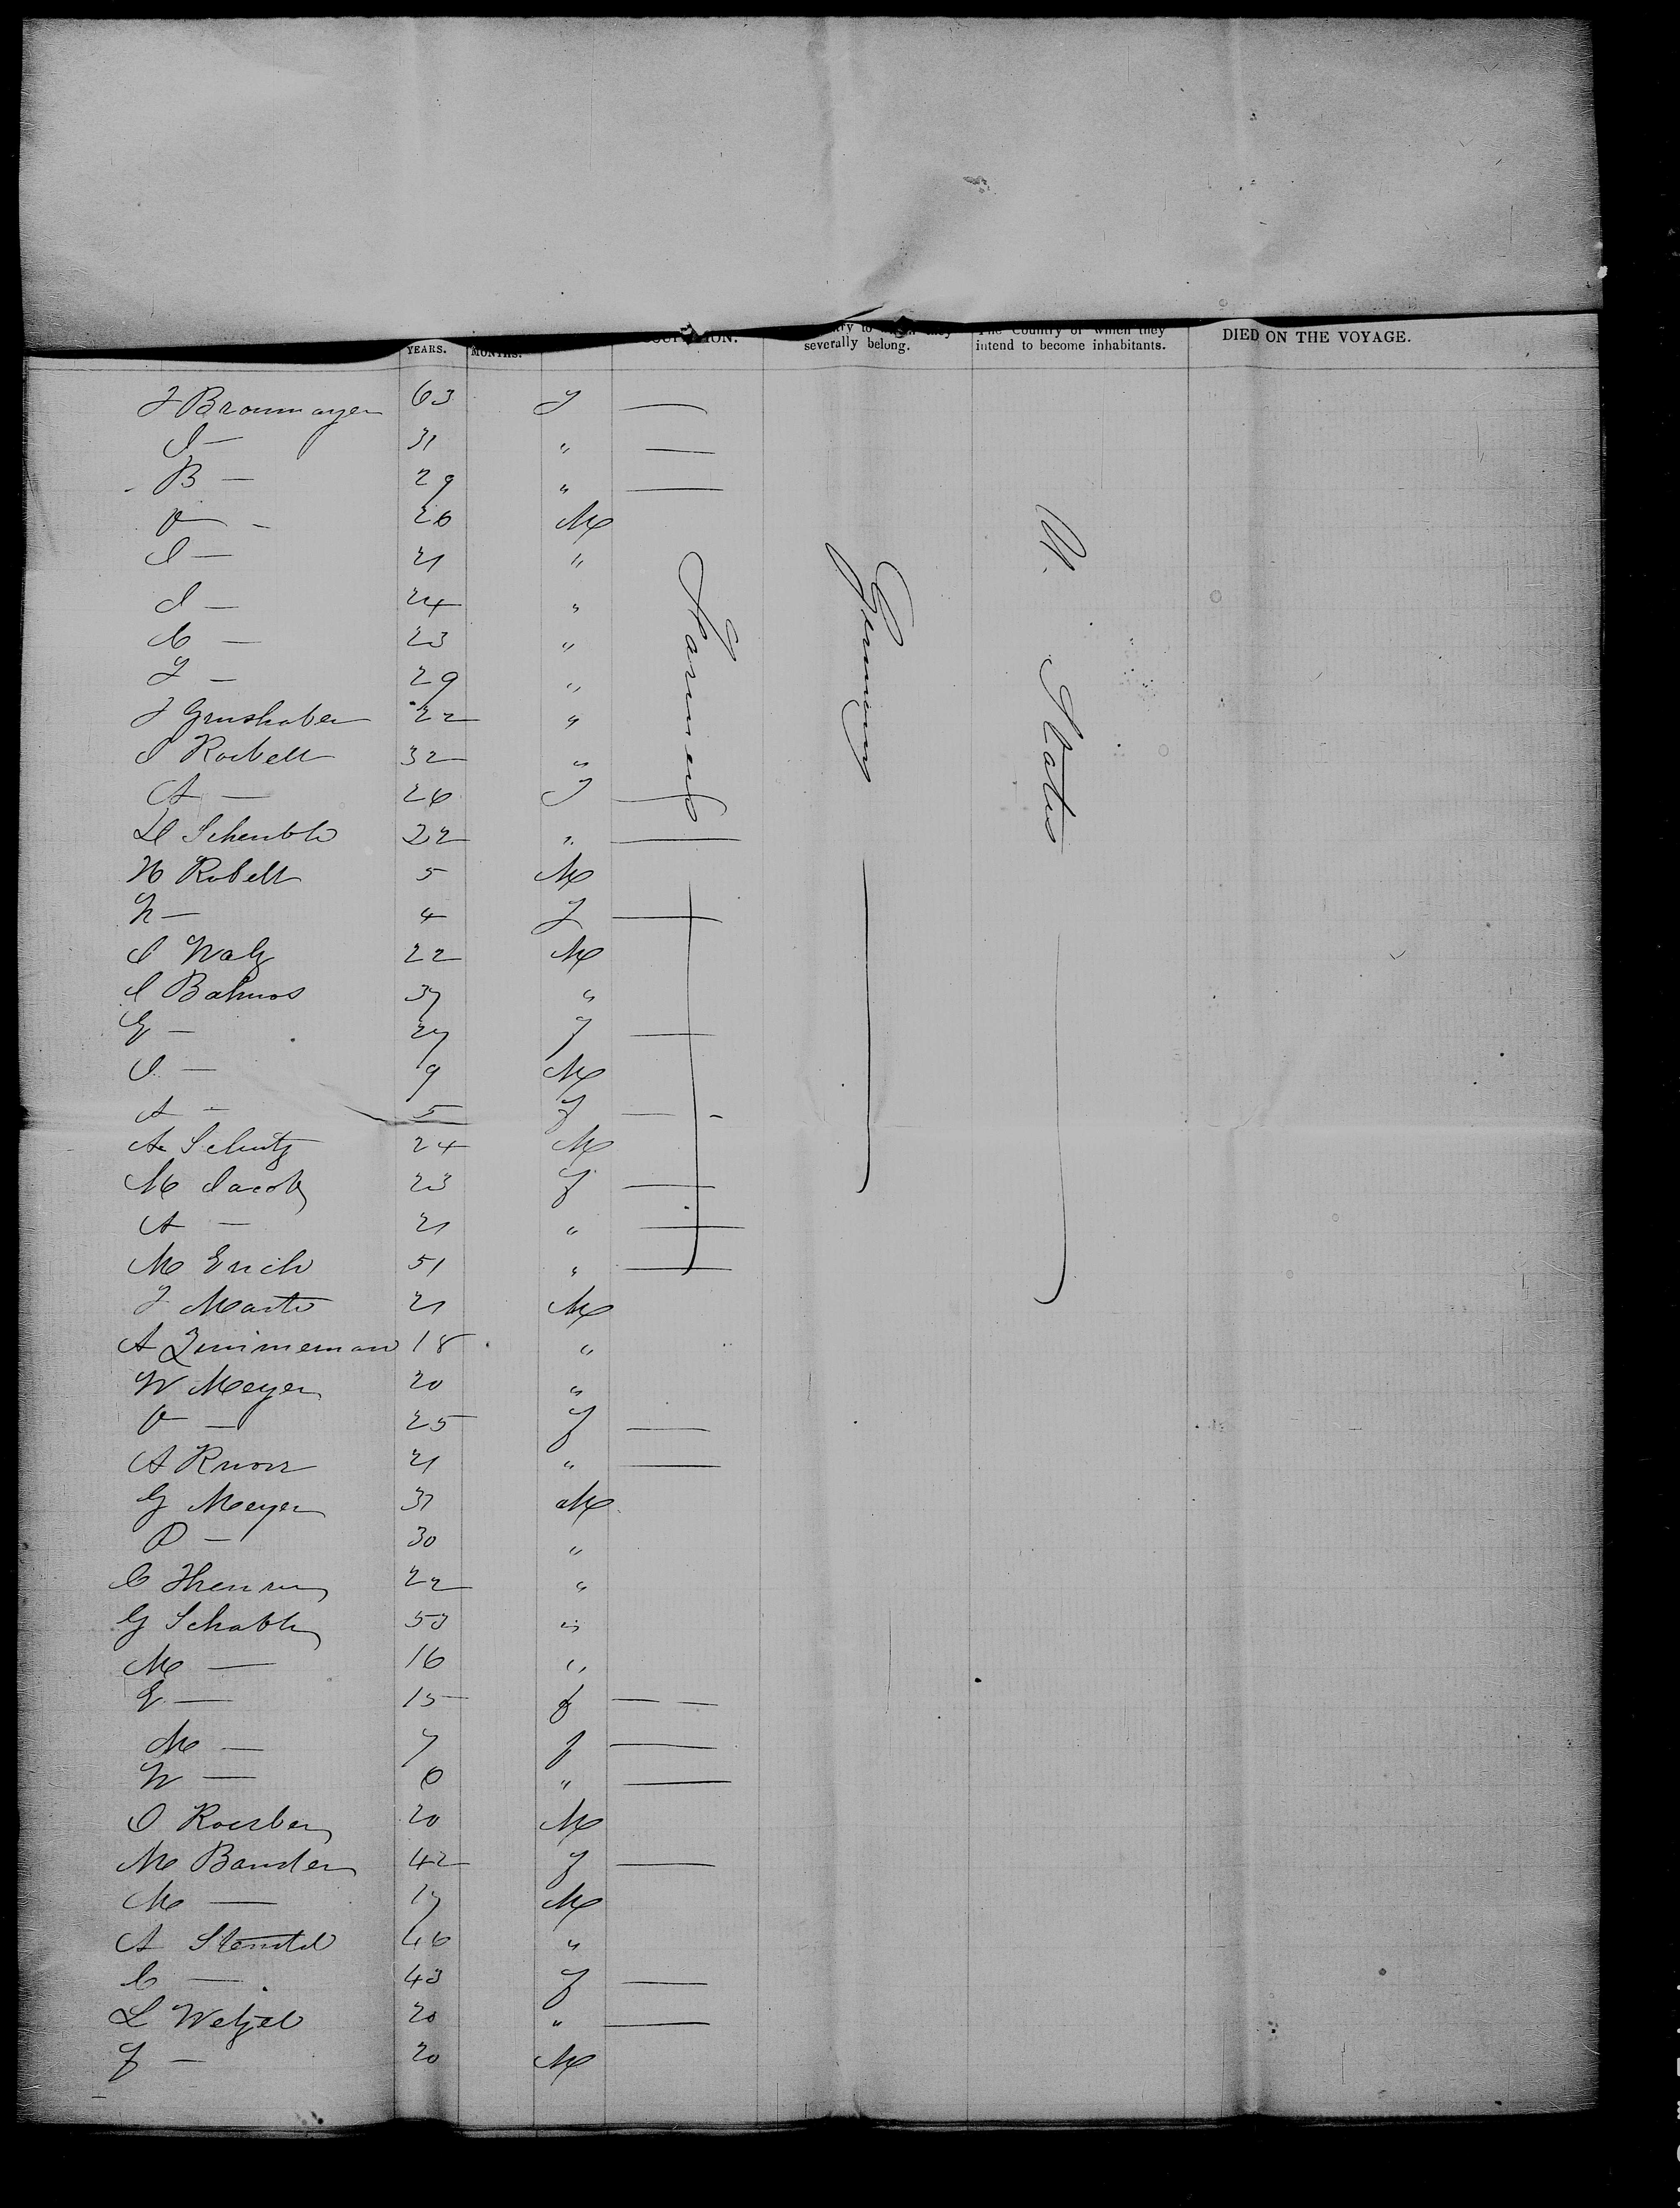 YEARS. MONTHS. severally belong. The Country of which they intend to become inhabitants. DIED ON THE VOYAGE.
J Bronmayer 63 F —
J — 31 " —
B — 29 " —
O — 26 M
J — 21 "
J — 24 "
C — 23 "
J — 29 "
J Grushaber 22 "
J Roebell 32 "
A — 26 F —
22 " —
H Robell 5 M
4 F —
J Walz 22 M
J Bahnos 37 "
E — 27 F —
J — 9 M
A — 5 F —
A Schutz 24 M
M Jacob 23 F —
A — 21 " —
M Erich 51 " —
J Marte 21 M
A Zimmerman 18 "
W Meyer 20 "
O — 25 F —
A Knorr 21 " —
G Meyer 31 M
O — 30 "
C 22 "
G Schable 53 "
M — 16 "
E — 15 F — —
M — 7 F —
W — 6 " —
O Roesber 20 M
M Bauder 42 F —
M — 17 M
A Stendel 46 "
C — 43 F —
L Wetzel 20 " —
F — 20 M
Farmers
Germany
U. States